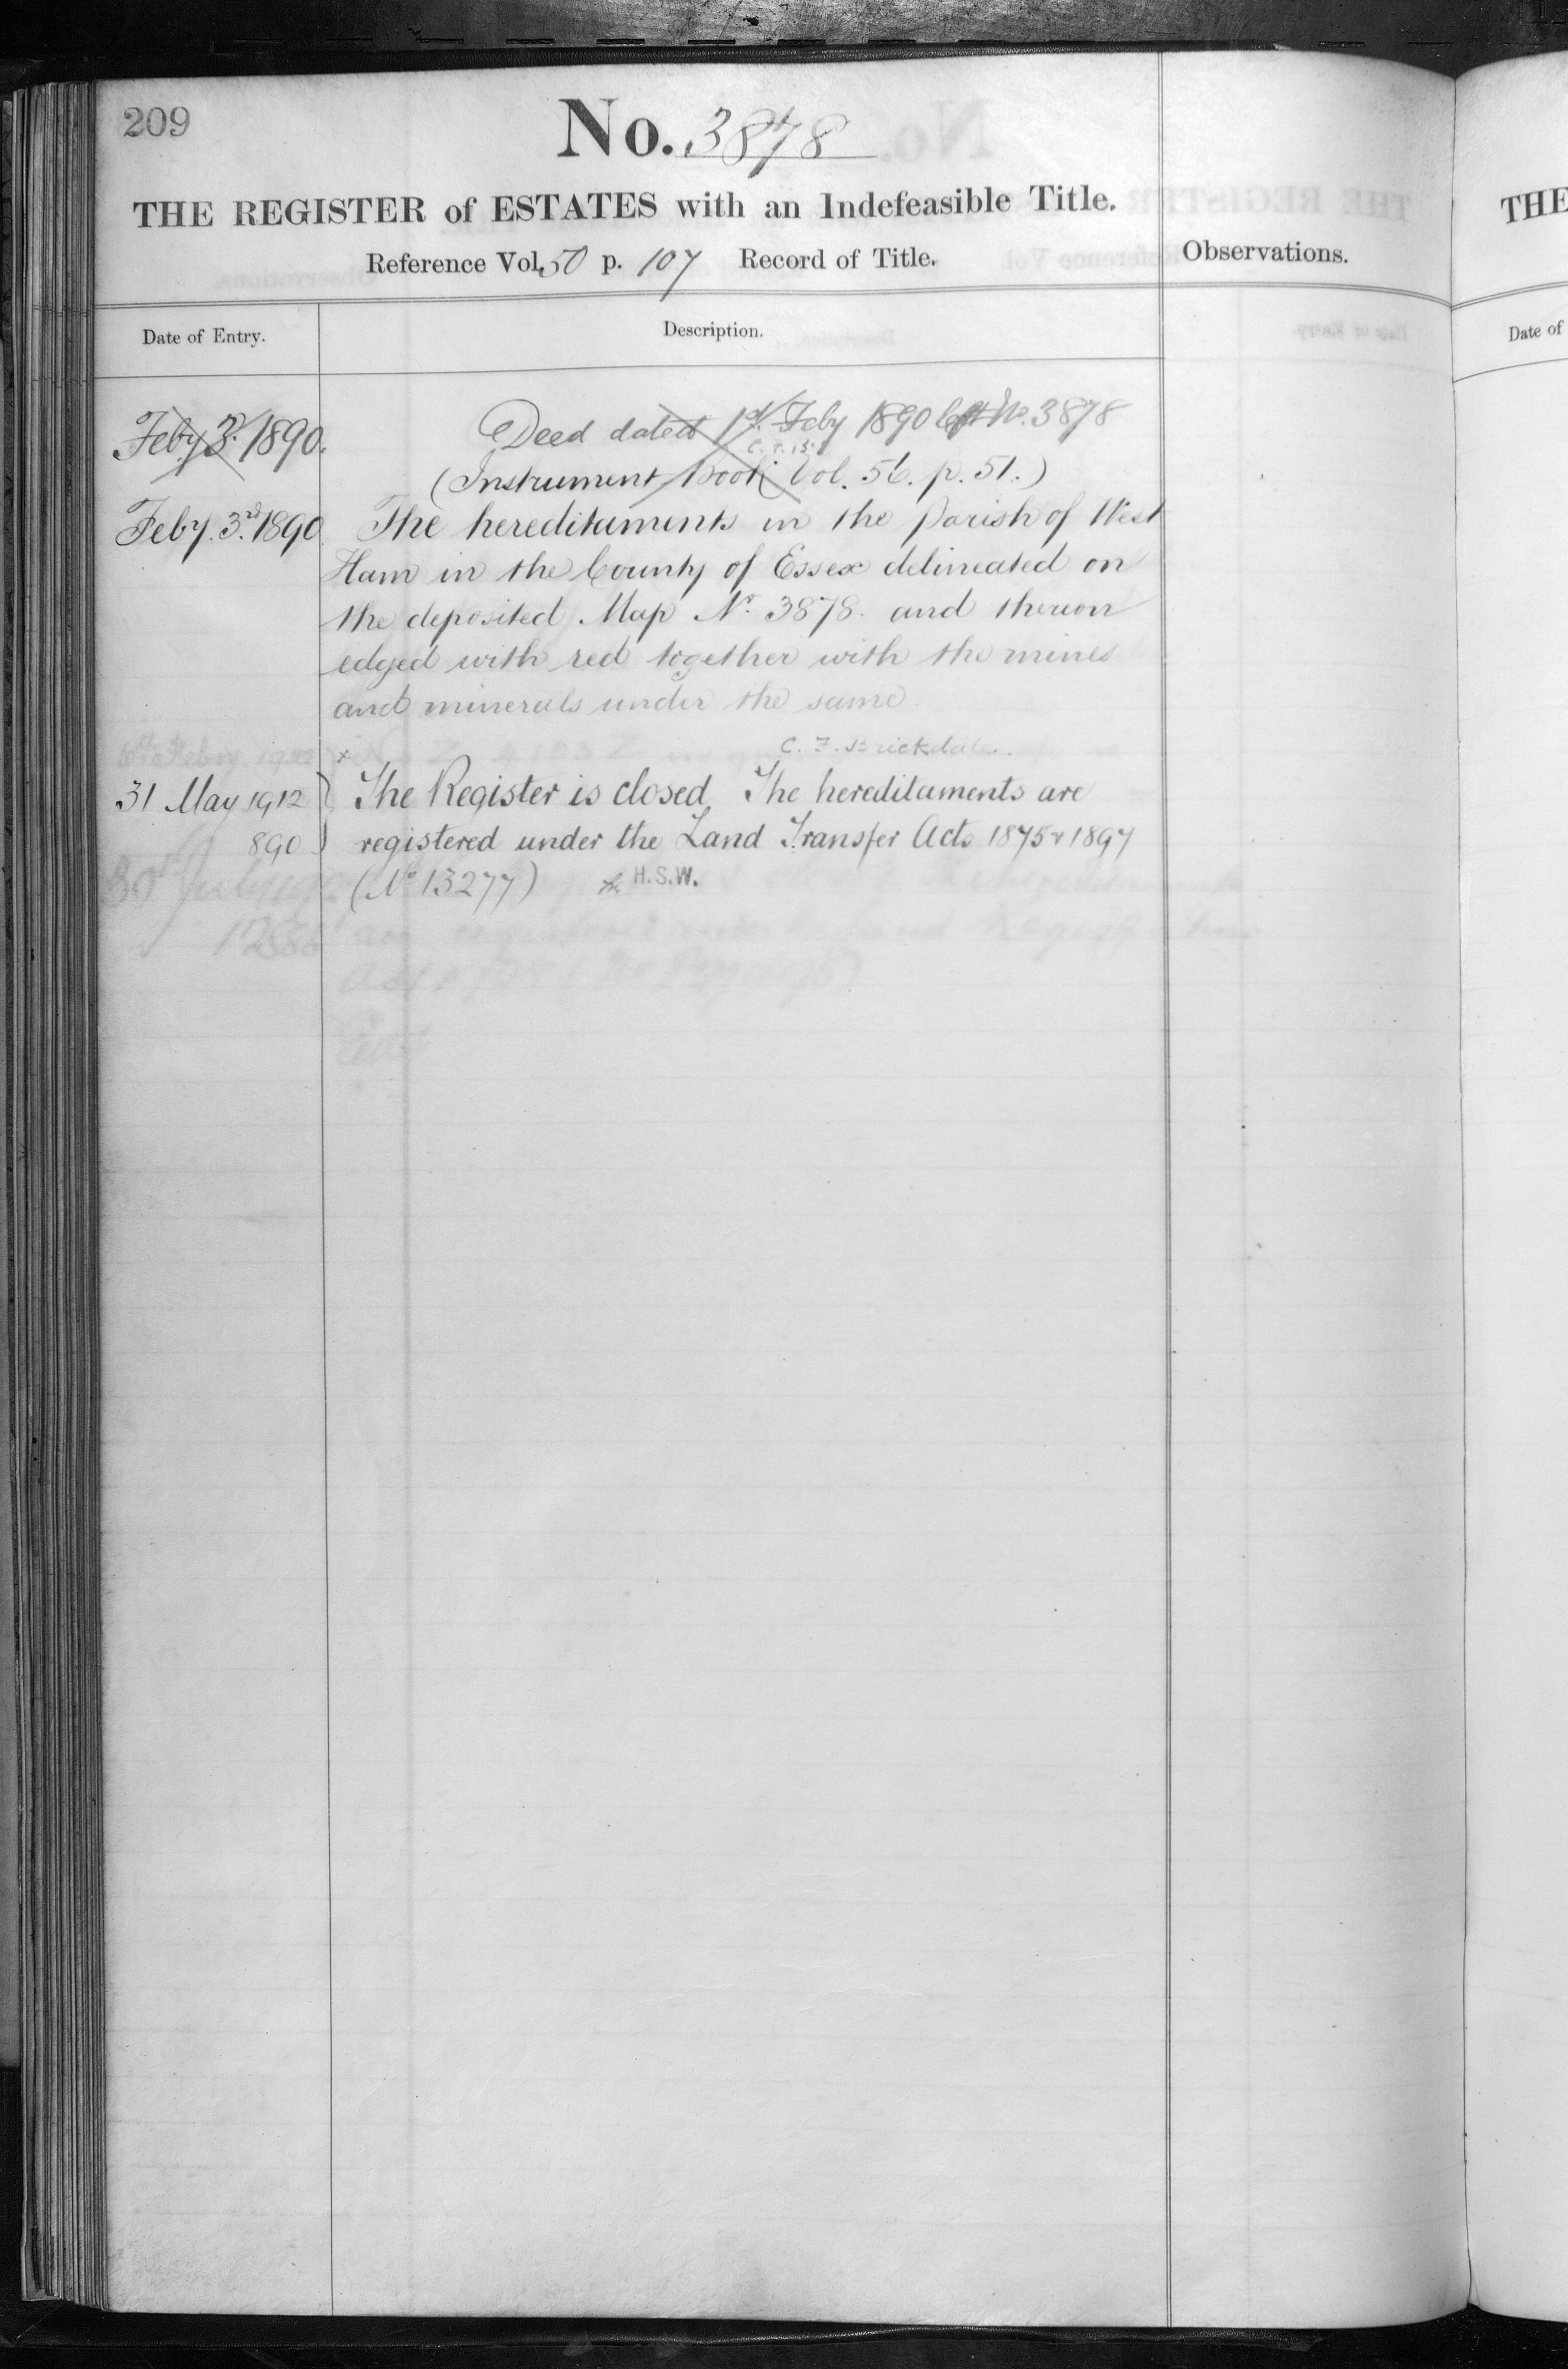 209
No. 3878
THE REGISTER of ESTATES with an Indefeasible Title.
Reference Vol. 50 p. 107 Record of Title.
Observations.
Date of Entry.
Description.
Feby 3rd 1890.
Deed dated 1st Feby 1890 left No. 3878
(Instrument Book Vol. 56. p. 51.)
Feby. 3rd 1890
The hereditaments in the Parish of West
Ham in the County of Essex delineated on
the deposited Map No. 3878. and thereon
edged with red together with the mines
and minerals under the same.
C. F. Brickdale.
31 May 1912
The Register is closed, The hereditaments are
890
registered under the Land Transfer Acts 1875 & 1897
(No 13277) H.S.W.
THE
Date of